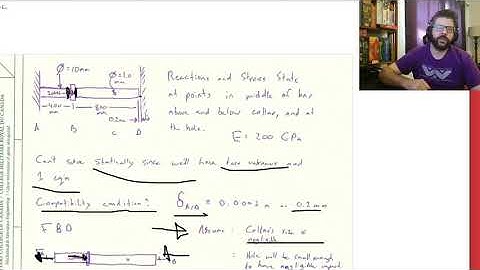 Ø=10mm
Ø=1.0
mm
Reactions and Stress State
at points in middle of bar
above and below collar, and at
the hole.
E = 200 GPa
0.2mm
400
mm
800
mm
A B C D
Can't solve statically since we'll have two unknowns and
1 eqn
Compatibility condition:
δA/D = 0.0002 m or 0.2 mm
FBD
Assume: Collar's size is
negligible
: Hole will be small enough
to have negligible impact